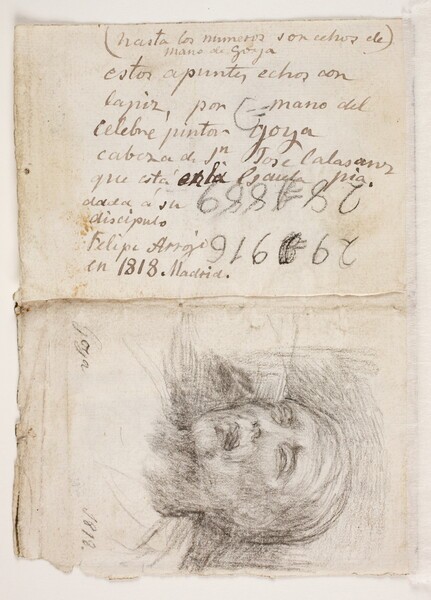 (hasta los numeros son echos de)
mano de Goya
estos apuntes echos con
lapiz, por mano del
Celebre pintor Goya
cabeza de Sn Jose Calasanz
que está en la Escuela pia.
dada a su
discipulo
Felipe Arrojo
en 1818. Madrid.
Goya
1818.